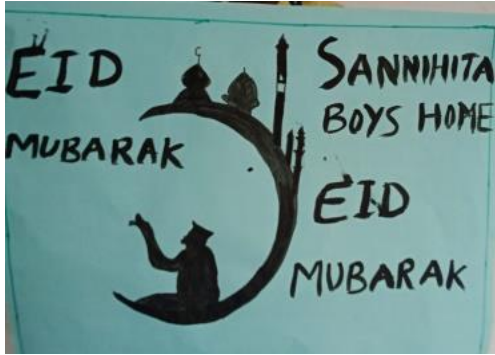 EID
MUBARAK
SANNIHITA
BOYS HOME
EID
MUBARAK